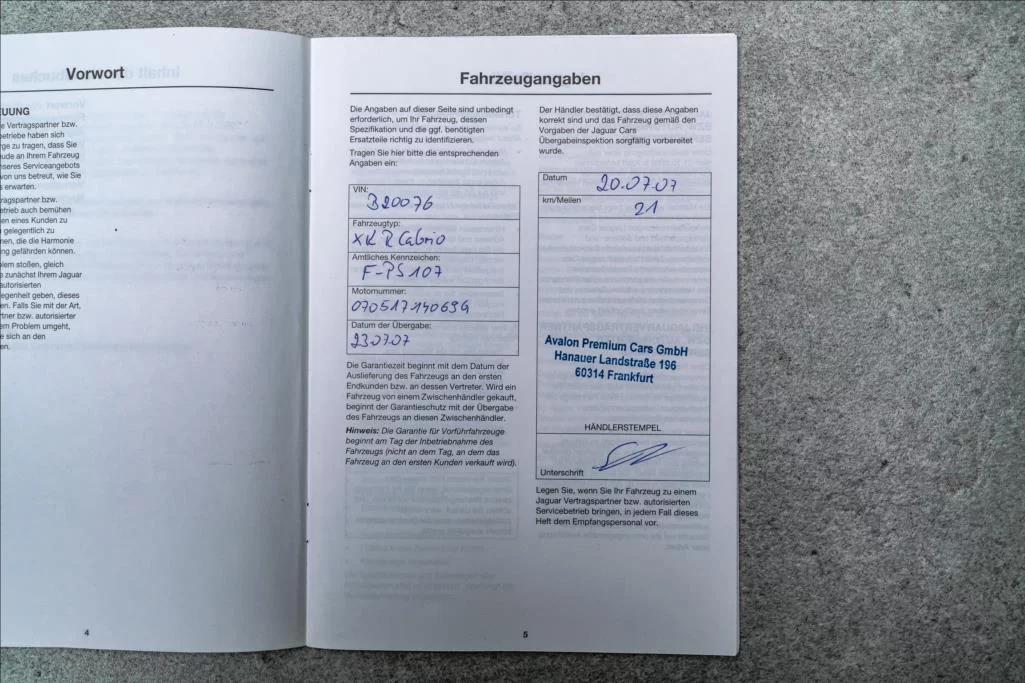 Vorwort
UUNG
e Vertragspartner bzw.
betriebe haben sich
rge zu tragen, dass Sie
eude an Ihrem Fahrzeug
nseres Serviceangebots
von uns betreut, wie Sie
s erwarten.
ragspartner bzw.
etrieb auch bemühen
en eines Kunden zu
gelegentlich zu
men, die die Harmonie
ng gefährden können.
lem stoßen, gleich
e zunächst Ihrem Jaguar
autorisierten
egenheit geben, dieses
en. Falls Sie mit der Art,
rtner bzw. autorisierter
em Problem umgeht,
e sich an den
en.
4
Fahrzeugangaben
Die Angaben auf dieser Seite sind unbedingt
erforderlich, um Ihr Fahrzeug, dessen
Spezifikation und die ggf. benötigten
Ersatzteile richtig zu identifizieren.
Tragen Sie hier bitte die entsprechenden
Angaben ein:
VIN:
B20076
Fahrzeugtyp:
XKR Cabrio
Amtliches Kennzeichen:
F-PS 107
Motornummer:
070517140639
Datum der Übergabe:
23.07.07
Die Garantiezeit beginnt mit dem Datum der
Auslieferung des Fahrzeugs an den ersten
Endkunden bzw. an dessen Vertreter. Wird ein
Fahrzeug von einem Zwischenhändler gekauft,
beginnt der Garantieschutz mit der Übergabe
des Fahrzeugs an diesen Zwischenhändler.
Hinweis: Die Garantie für Vorführfahrzeuge
beginnt am Tag der Inbetriebnahme des
Fahrzeugs (nicht an dem Tag, an dem das
Fahrzeug an den ersten Kunden verkauft wird).
Der Händler bestätigt, dass diese Angaben
korrekt sind und das Fahrzeug gemäß den
Vorgaben der Jaguar Cars
Übergabeinspektion sorgfältig vorbereitet
wurde.
Datum 20.07.07
km/Meilen 21
Avalon Premium Cars GmbH
Hanauer Landstraße 196
60314 Frankfurt
HÄNDLERSTEMPEL
Unterschrift
Legen Sie, wenn Sie Ihr Fahrzeug zu einem
Jaguar Vertragspartner bzw. autorisierten
Servicebetrieb bringen, in jedem Fall dieses
Heft dem Empfangspersonal vor.
5